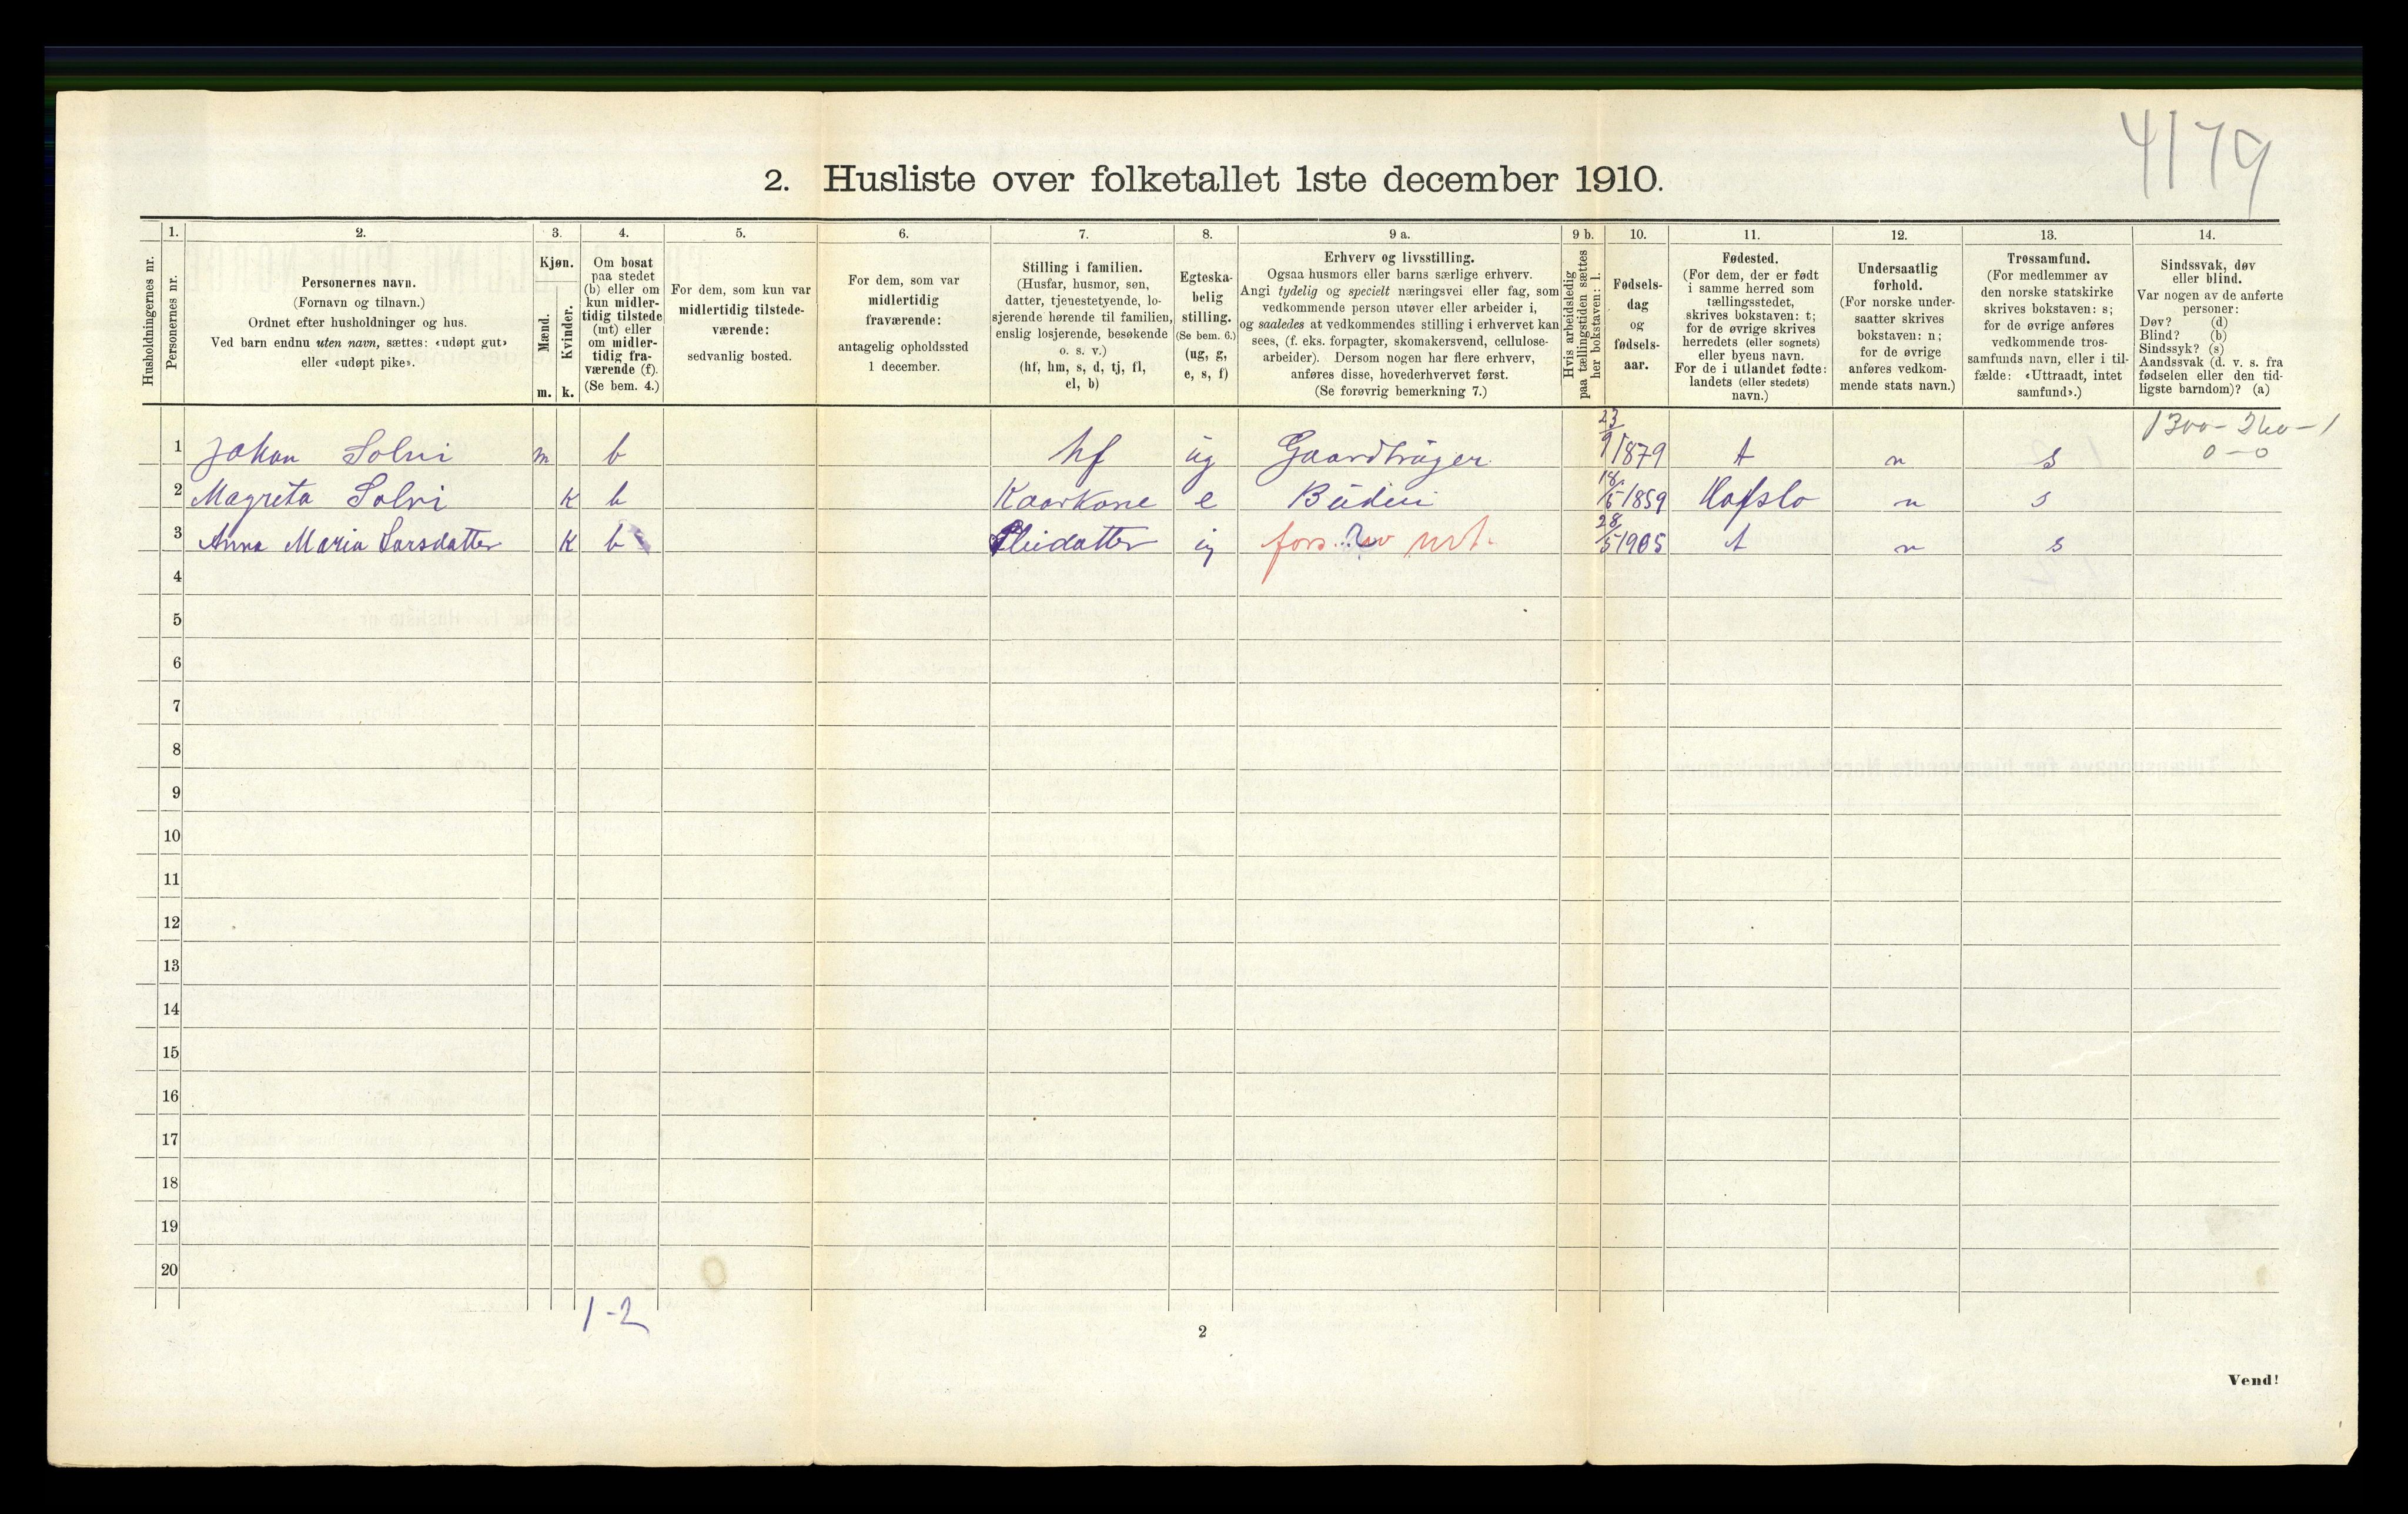 4179
2. Husliste over folketallet 1ste december 1910.
Husholdningernes nr.
1.
Personernes nr.
2.
Personernes navn.
(Fornavn og tilnavn.)
Ordnet efter husholdninger og hus.
Ved barn endnu uten navn, sættes: «udøpt gut»
eller «udøpt pike».
3.
Kjøn.
Mænd.
m.
Kvinder.
k.
4.
Om bosat
paa stedet
(b) eller om
kun midler-
tidig tilstede
(mt) eller
om midler-
tidig fra-
værende (f).
(Se bem. 4.)
5.
For dem, som kun var
midlertidig tilstede-
værende:
sedvanlig bosted.
6.
For dem, som var
midlertidig
fraværende:
antagelig opholdssted
1 december.
7.
Stilling i familien.
(Husfar, husmor, søn,
datter, tjenestetyende, lo-
sjerende hørende til familien,
enslig losjerende, besøkende
o. s. v.)
(hf, hm, s, d, tj, fl,
el, b)
8.
Egteska-
belig
stilling.
(Se bem. 6.)
(ug, g,
e, s, f)
9 a.
Erhverv og livsstilling.
Ogsaa husmors eller barns særlige erhverv.
Angi tydelig og specielt næringsvei eller fag, som
vedkommende person utøver eller arbeider i,
og saaledes at vedkommendes stilling i erhvervet kan
sees, (f. eks. forpagter, skomakersvend, cellulose-
arbeider). Dersom nogen har flere erhverv,
anføres disse, hovederhvervet først.
(Se forøvrig bemerkning 7.)
9 b.
Hvis arbeidsledig
paa tællingstiden sættes
her bokstaven: l.
10.
Fødsels-
dag
og
fødsels-
aar.
11.
Fødested.
(For dem, der er født
i samme herred som
tællingsstedet,
skrives bokstaven: t;
for de øvrige skrives
herredets (eller sognets)
eller byens navn.
For de i utlandet fødte:
landets (eller stedets)
navn.)
12.
Undersaatlig
forhold.
(For norske under-
saatter skrives
bokstaven: n;
for de øvrige
anføres vedkom-
mende stats navn.)
13.
Trossamfund.
(For medlemmer av
den norske statskirke
skrives bokstaven: s;
for de øvrige anføres
vedkommende tros-
samfunds navn, eller i til-
fælde: «Uttraadt, intet
samfund».)
14.
Sindssvak, døv
eller blind.
Var nogen av de anførte
personer:
Døv? (d)
Blind? (b)
Sindssyk? (s)
Aandssvak (d. v. s. fra
fødselen eller den tid-
ligste barndom)? (a)
1300-260-1
0-0
1 Johan Solvi m b hf ug Gaardbruger 23/9 1879 t n s
2 Magreta Solvi k b Kaarkone e 18/5 1859 Hafslo n s
3 Anna Maria Larsdatter k b ug fors. 28/5 1905 t n s
4
5
6
7
8
9
10
11
12
13
14
15
16
17
18
19
20
1-2
2
Vend!